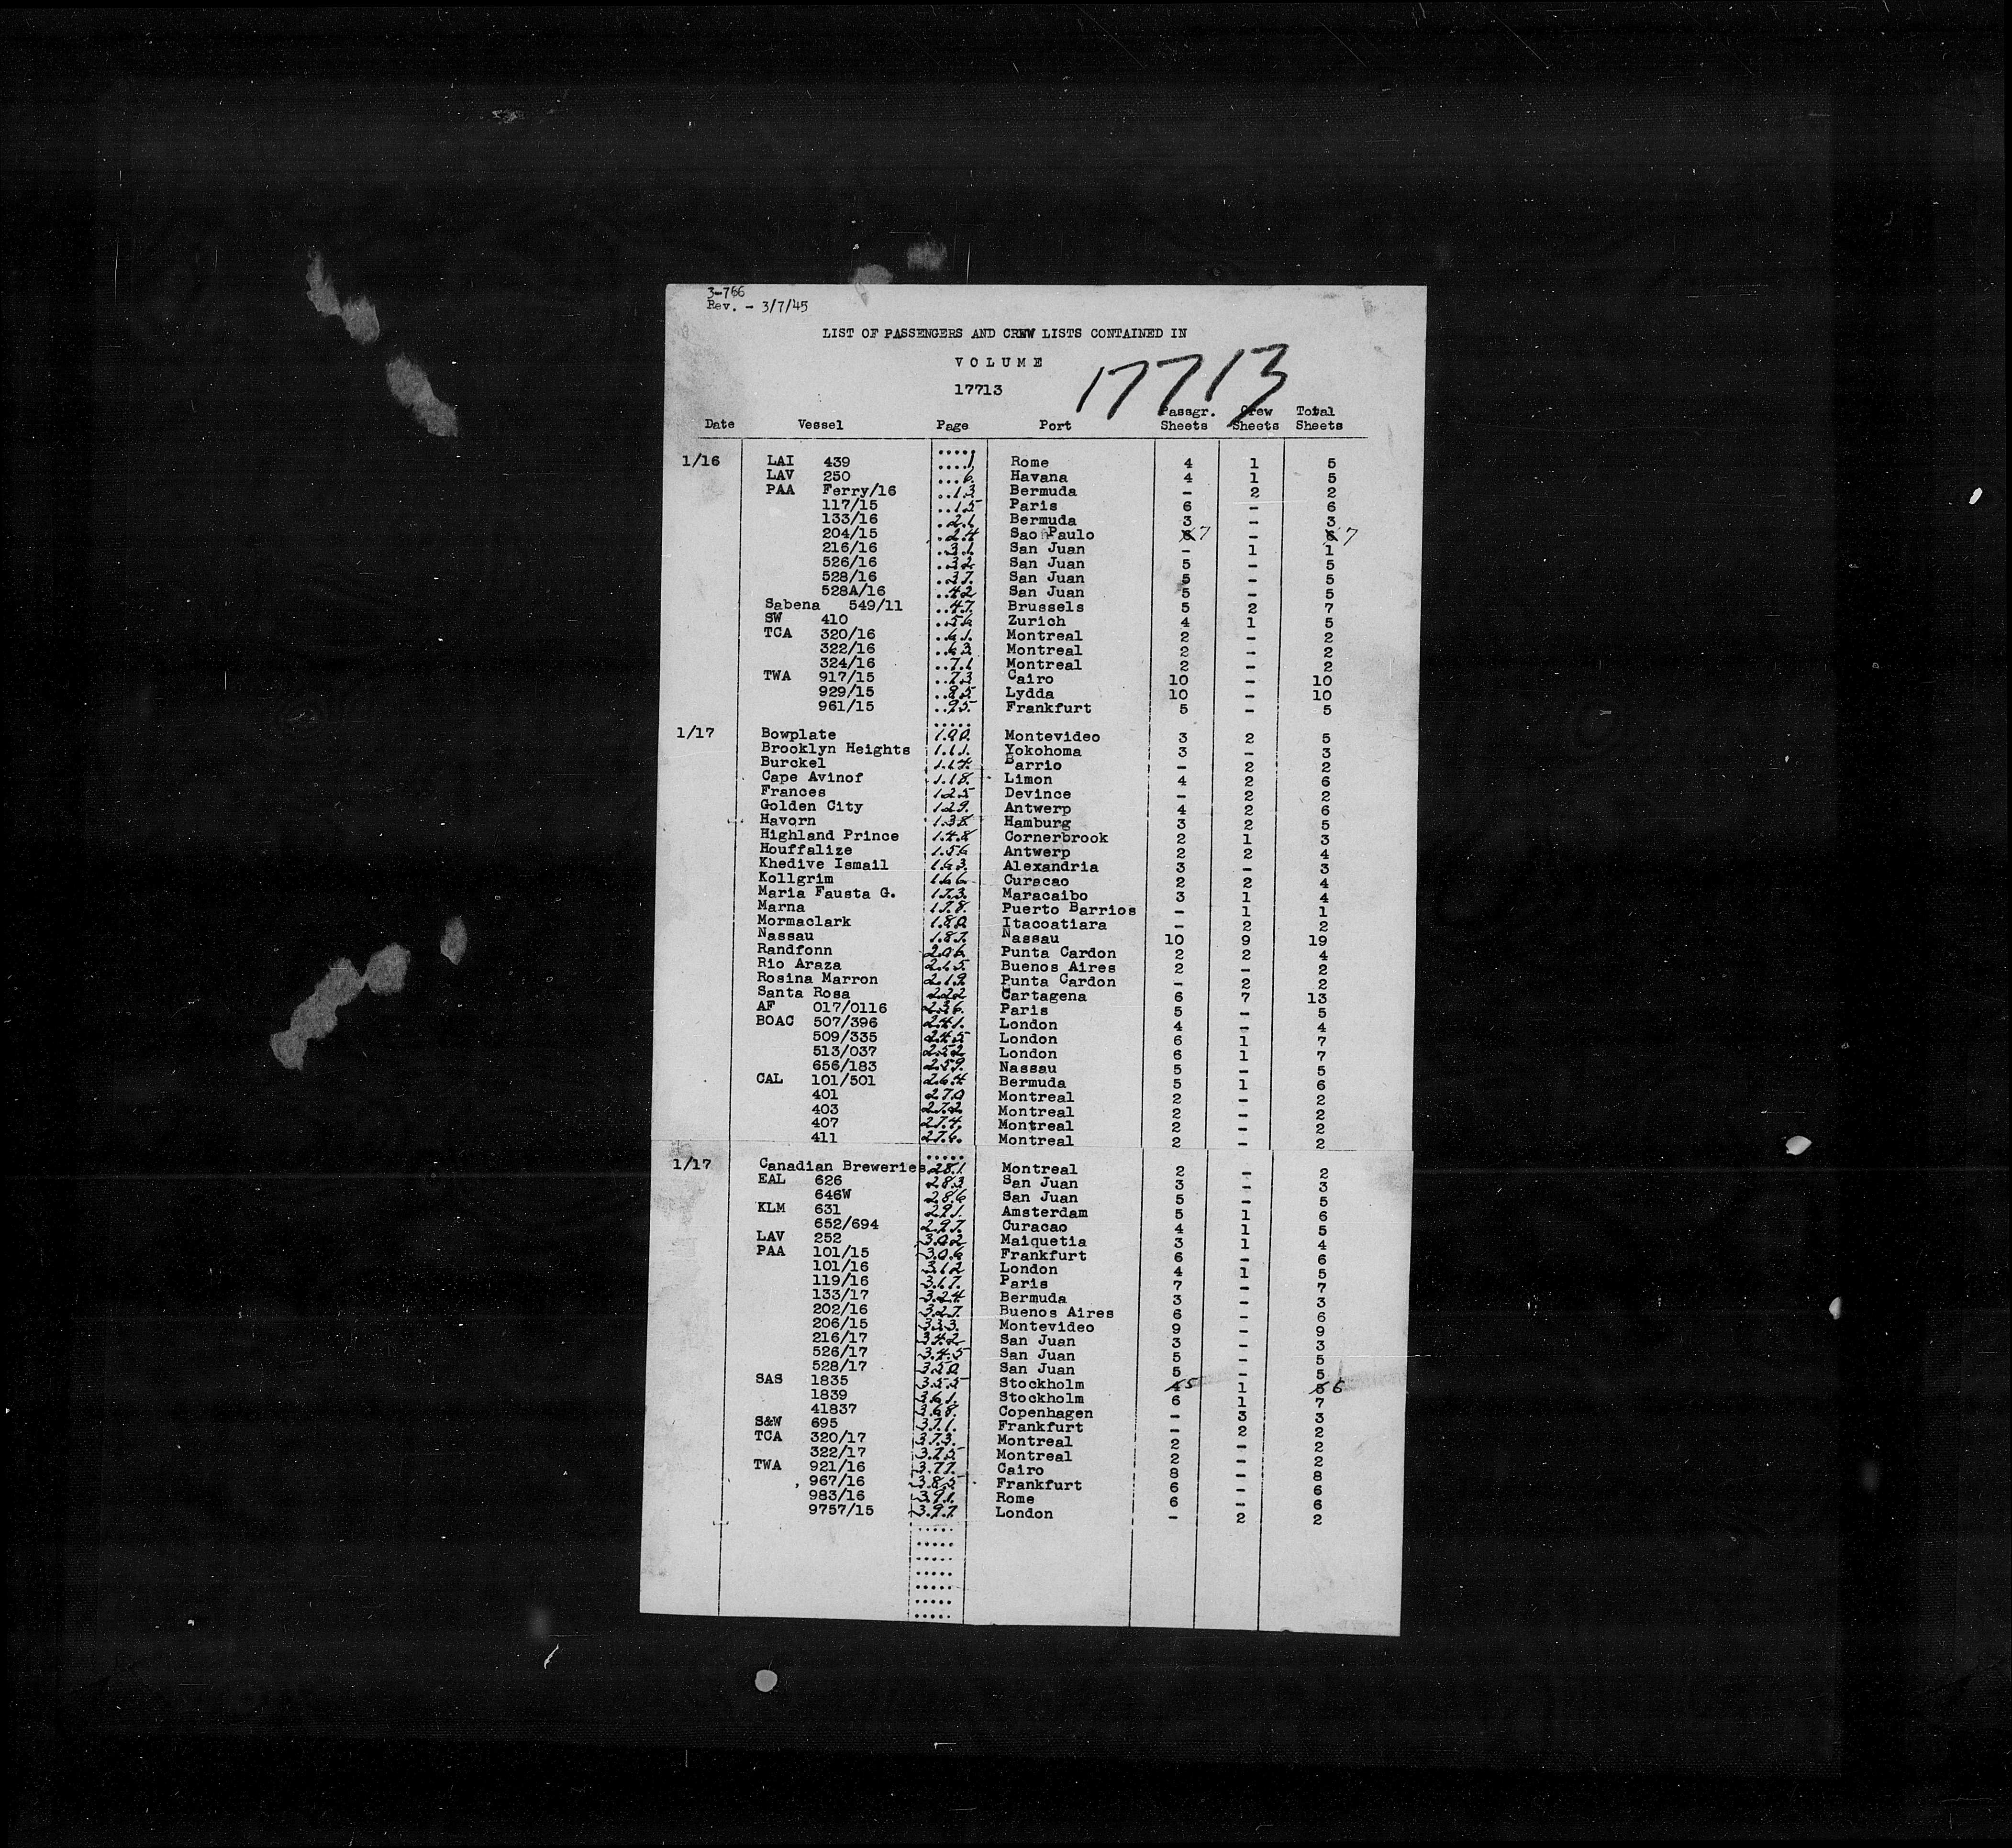 3-766
Rev. - 3/7/45
LIST OF PASSENGERS AND CREW LISTS CONTAINED IN
VOLUME
17713
17713
Date Vessel Page Port Passgr. Sheets Crew Sheets Total Sheets
1/16 LAI 439 1 Rome 4 1 5
LAV 250 6 Havana 4 1 5
PAA Ferry/16 13 Bermuda - 2 2
117/15 15 Paris 6 - 6
133/16 21 Bermuda 3 - 3
204/15 24 Sao Paulo 6 7 - 6 7
216/16 31 San Juan - 1 1
526/16 32 San Juan 5 - 5
528/16 37 San Juan 5 - 5
528A/16 42 San Juan 5 - 5
Sabena 549/11 47 Brussels 5 2 7
SW 410 56 Zurich 4 1 5
TCA 320/16 61 Montreal 2 - 2
322/16 63 Montreal 2 - 2
324/16 71 Montreal 2 - 2
TWA 917/15 73 Cairo 10 - 10
929/15 85 Lydda 10 - 10
961/15 95 Frankfurt 5 - 5
1/17 Bowplate 100 Montevideo 3 2 5
Brooklyn Heights 111 Yokohoma 3 - 3
Burckel 114 Barrio - 2 2
Cape Avinof 118 Limon 4 2 6
Frances 125 Devince - 2 2
Golden City 129 Antwerp 4 2 6
Havorn 138 Hamburg 3 2 5
Highland Prince 148 Cornerbrook 2 1 3
Houffalize 156 Antwerp 2 2 4
Khedive Ismail 163 Alexandria 3 - 3
Kollgrim 166 Curacao 2 2 4
Maria Fausta G. 173 Maracaibo 3 1 4
Marna 178 Puerto Barrios - 1 1
Mormaclark 180 Itacoatiara - 2 2
Nassau 187 Nassau 10 9 19
Randfonn 206 Punta Cardon 2 2 4
Rio Araza 215 Buenos Aires 2 - 2
Rosina Marron 219 Punta Cardon - 2 2
Santa Rosa 222 Cartagena 6 7 13
AF 017/0116 236 Paris 5 - 5
BOAC 507/396 241 London 4 - 4
509/335 245 London 6 1 7
513/037 252 London 6 1 7
656/183 259 Nassau 5 - 5
CAL 101/501 264 Bermuda 5 1 6
401 270 Montreal 2 - 2
403 272 Montreal 2 - 2
407 274 Montreal 2 - 2
411 276 Montreal 2 - 2
1/17 Canadian Breweries 281 Montreal 2 - 2
EAL 626 283 San Juan 3 - 3
646W 286 San Juan 5 - 5
KLM 631 291 Amsterdam 5 1 6
652/694 297 Curacao 4 1 5
LAV 252 302 Maiquetia 3 1 4
PAA 101/15 306 Frankfurt 6 - 6
101/16 312 London 4 1 5
119/16 317 Paris 7 - 7
133/17 324 Bermuda 3 - 3
202/16 327 Buenos Aires 6 - 6
206/15 333 Montevideo 9 - 9
216/17 342 San Juan 3 - 3
526/17 345 San Juan 5 - 5
528/17 350 San Juan 5 - 5
SAS 1835 355 Stockholm 4 5 1 5 6
1839 361 Stockholm 6 1 7
41837 368 Copenhagen - 3 3
S&W 695 371 Frankfurt - 2 2
TCA 320/17 373 Montreal 2 - 2
322/17 375 Montreal 2 - 2
TWA 921/16 377 Cairo 8 - 8
967/16 385 Frankfurt 6 - 6
983/16 391 Rome 6 - 6
9757/15 397 London - 2 2